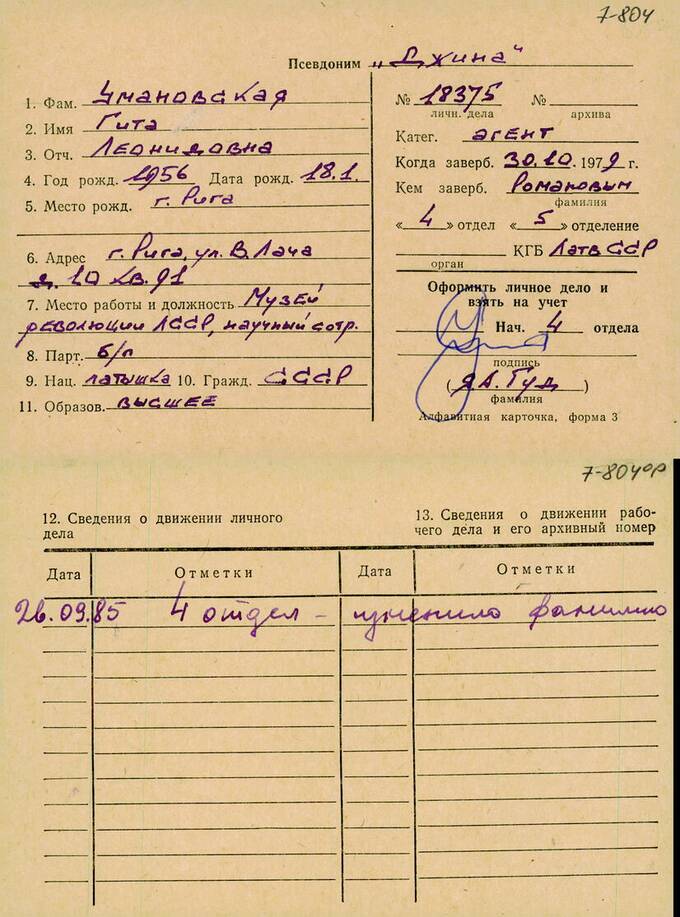 7-804
Псевдоним „Джина"
1. Фам. Умановская
2. Имя Гита
3. Отч. Леонидовна
4. Год рожд. 1956 Дата рожд. 18.1.
5. Место рожд. г. Рига
6. Адрес г. Рига, ул. В. Лача
д. 10 кв. 91
7. Место работы и должность Музей
революции ЛССР, научный сотр.
8. Парт. б/п
9. Нац. латышка 10. Гражд. СССР
11. Образов. высшее
№ 18375 №
личн. дела архива
Катег. агент
Когда заверб. 30.10.1979 г.
Кем заверб. Романовым
фамилия
«4» отдел «5» отделение
КГБ Латв ССР
орган
Оформить личное дело и
взять на учет
Нач. 4 отдела
подпись
(Я.А. Гуд)
фамилия
Алфавитная карточка, форма 3
7-804 ор
12. Сведения о движении личного
дела
13. Сведения о движении рабо-
чего дела и его архивный номер
Дата Отметки Дата Отметки
26.09.85 4 отдел - изменила фамилию